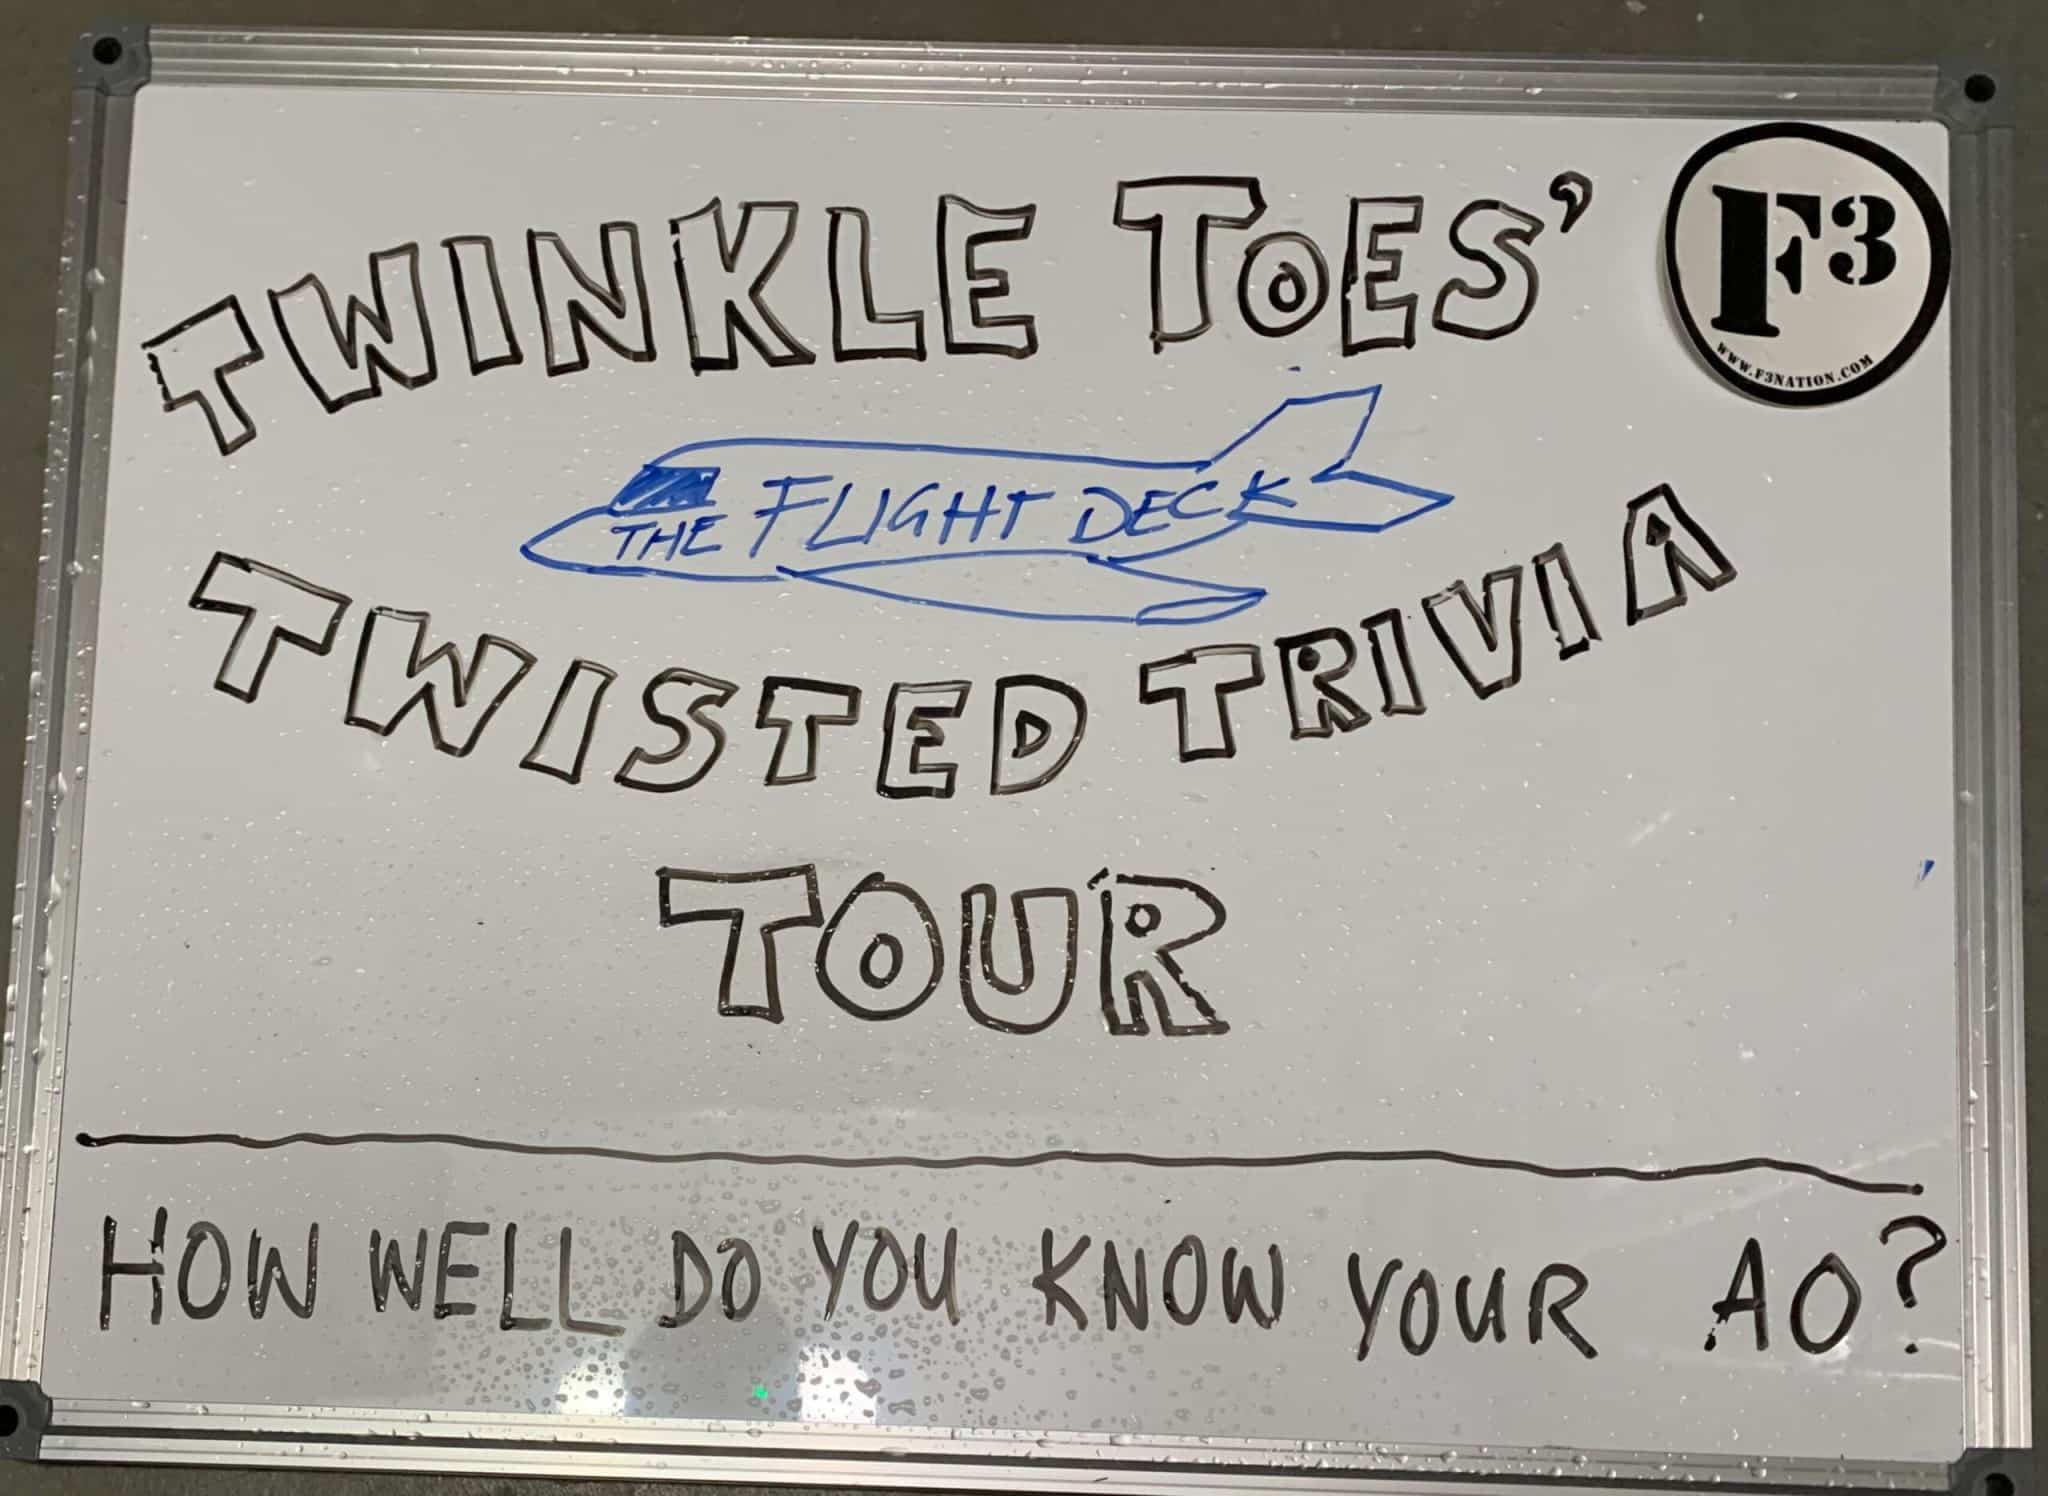 TWINKLE TOES'
F3
WWW.F3NATION.COM
THE FLIGHT DECK
TWISTED TRIVIA
TOUR
HOW WELL DO YOU KNOW YOUR AO?